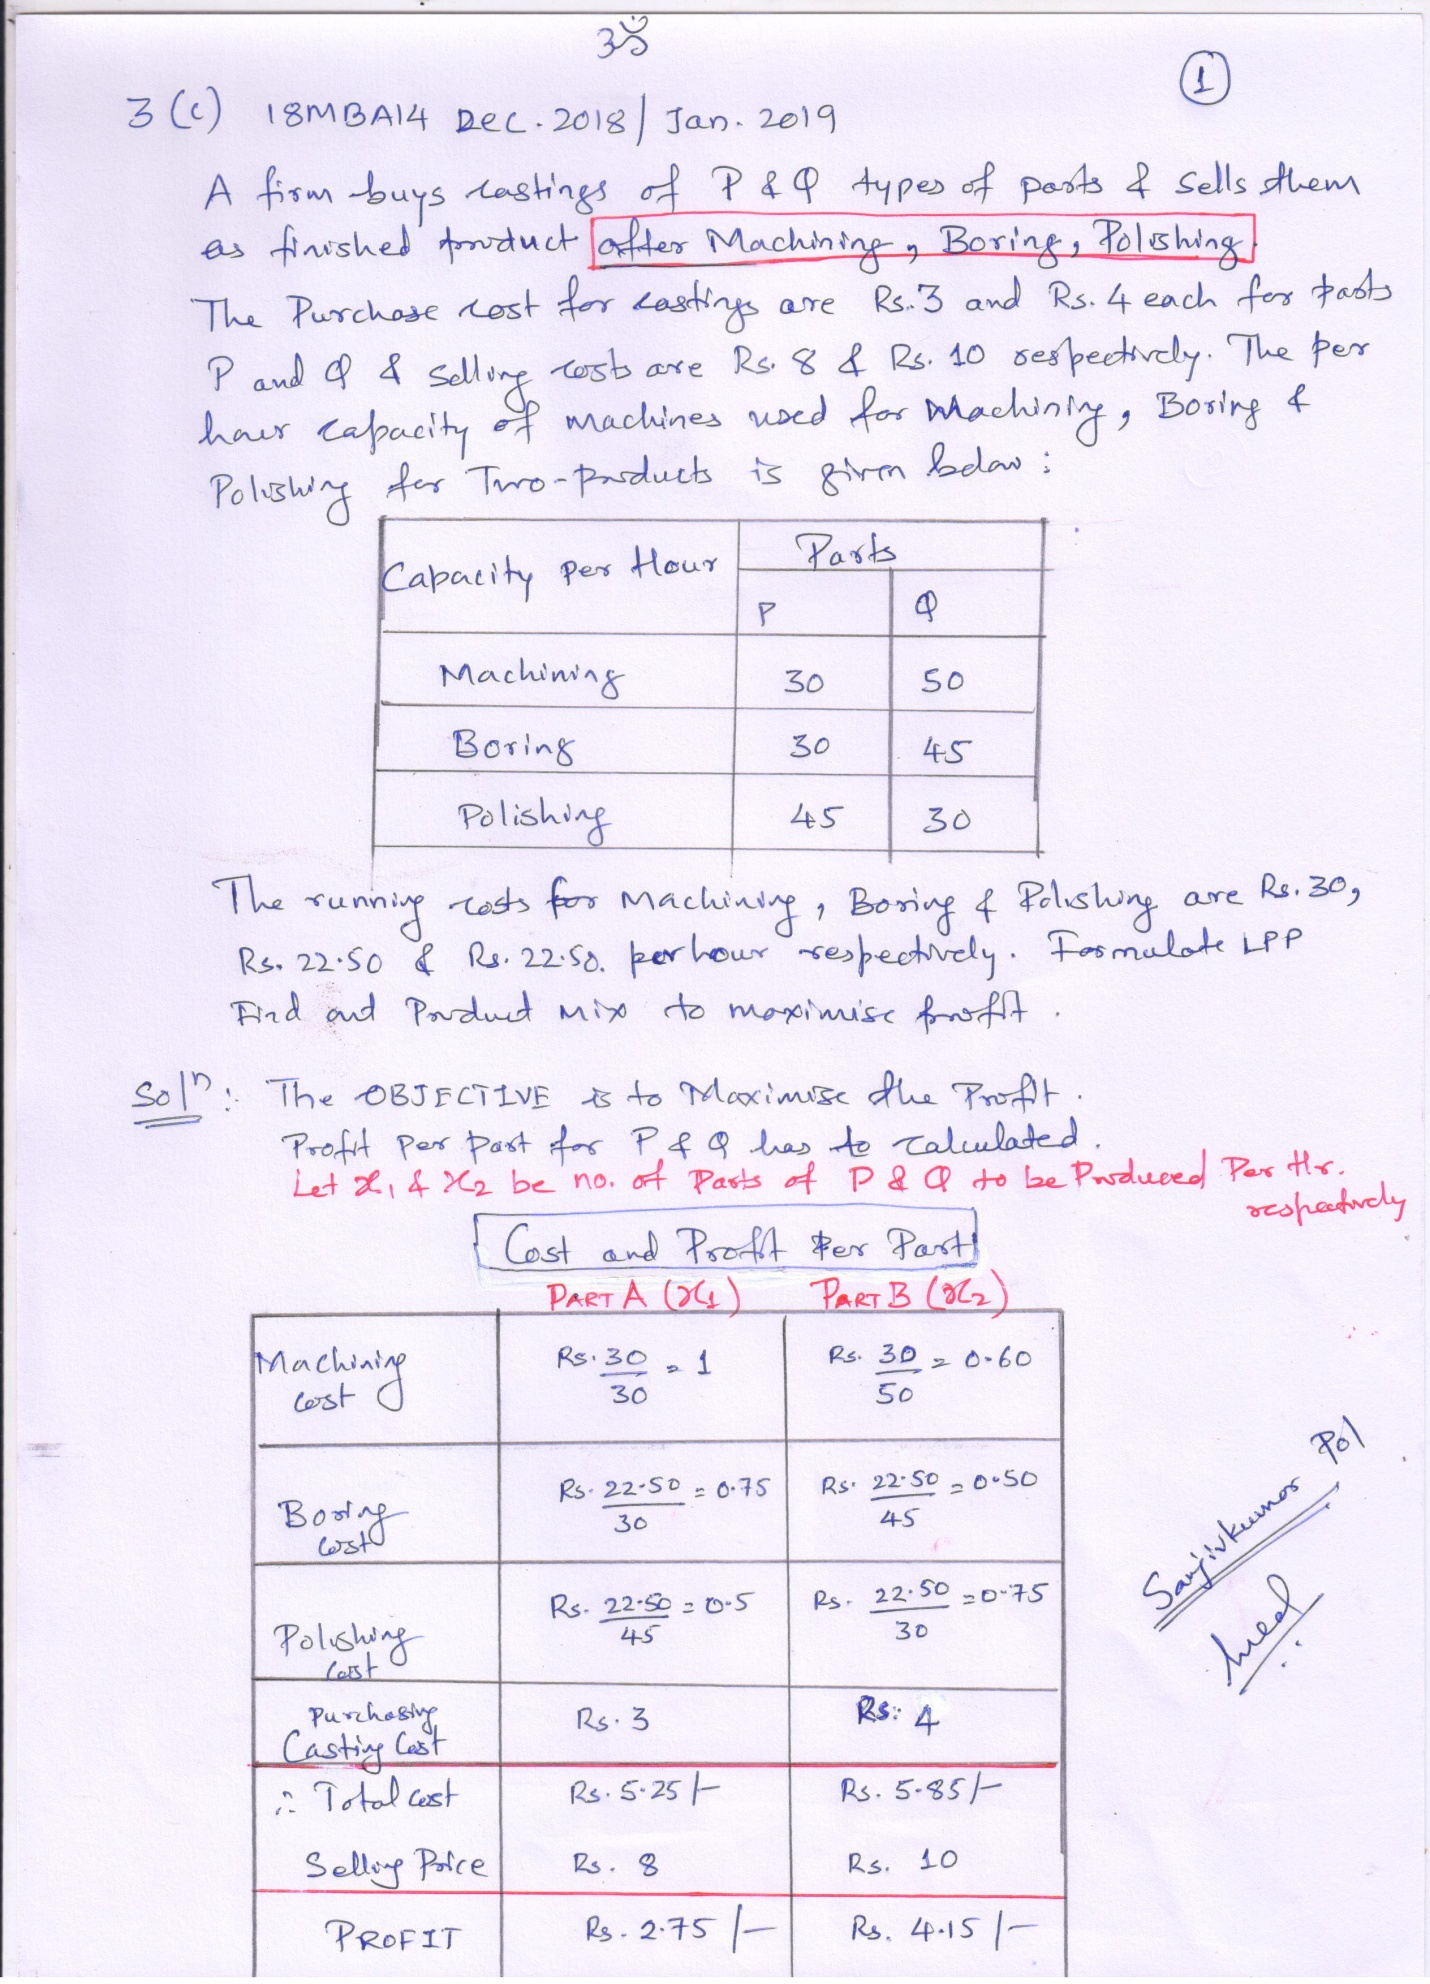 ॐ
1
3 (c) 18MBA14 Dec. 2018 / Jan. 2019
A firm buys castings of P & Q types of parts & sells them
as finished product after Machining, Boring, Polishing.
The Purchase cost for castings are Rs. 3 and Rs. 4 each for parts
P and Q & selling costs are Rs. 8 & Rs. 10 respectively. The per
hour capacity of machines used for Machining, Boring &
Polishing for Two-products is given below :
Capacity Per Hour Parts
P Q
Machining 30 50
Boring 30 45
Polishing 45 30
The running costs for Machining, Boring & Polishing are Rs. 30,
Rs. 22.50 & Rs. 22.50. per hour respectively. Formulate LPP
Find out Product Mix to maximise profit.
Soln: The OBJECTIVE is to Maximise the Profit.
Profit Per part for P & Q has to calculated.
Let x1 & x2 be no. of Parts of P & Q to be Produced Per Hr.
respectively
Cost and Profit Per Part
PART A (x1) PART B (x2)
Machining Cost Rs. 30/30 = 1 Rs. 30/50 = 0.60
Boring Cost Rs. 22.50/30 = 0.75 Rs. 22.50/45 = 0.50
Polishing Cost Rs. 22.50/45 = 0.5 Rs. 22.50/30 = 0.75
Purchasing Casting Cost Rs. 3 Rs. 4
∴ Total Cost Rs. 5.25/- Rs. 5.85/-
Selling Price Rs. 8 Rs. 10
PROFIT Rs. 2.75/- Rs. 4.15/-
Sanjivkumar Pol